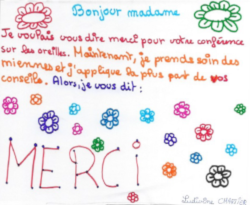 Bonjour madame
Je voulais vous dire merci pour votre conférence
sur les oreilles. Maintenant, je prends soin des
miennes et j'applique la plus part de vos
conseils. Alors, je vous dit:
MERCI